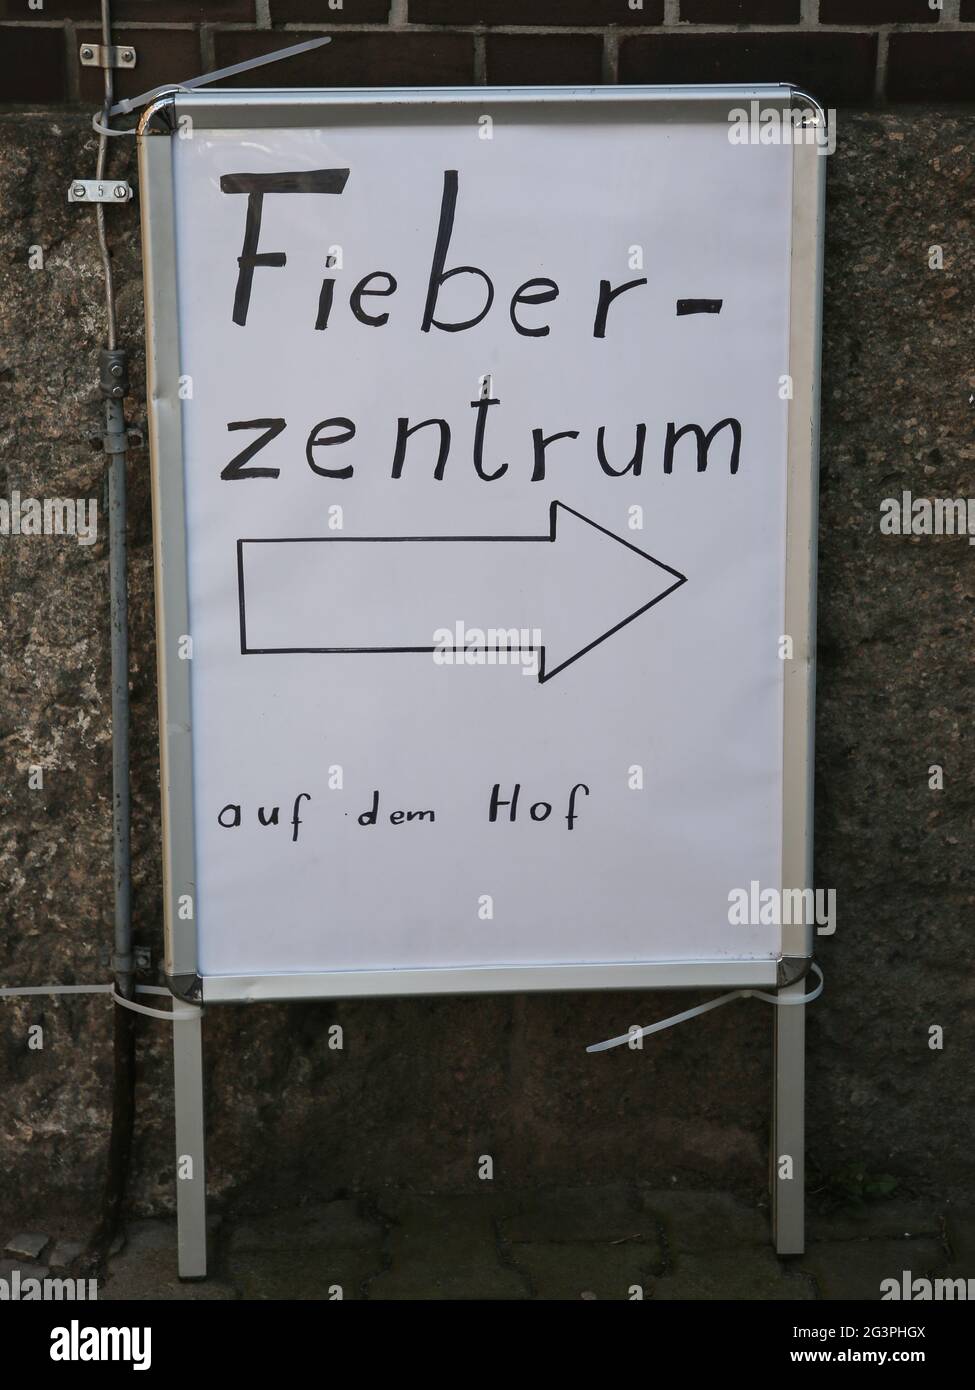 Fieber-
zentrum
auf dem Hof
5
alamy
a
alamy
Image ID: 2G3PHGX
www.alamy.com